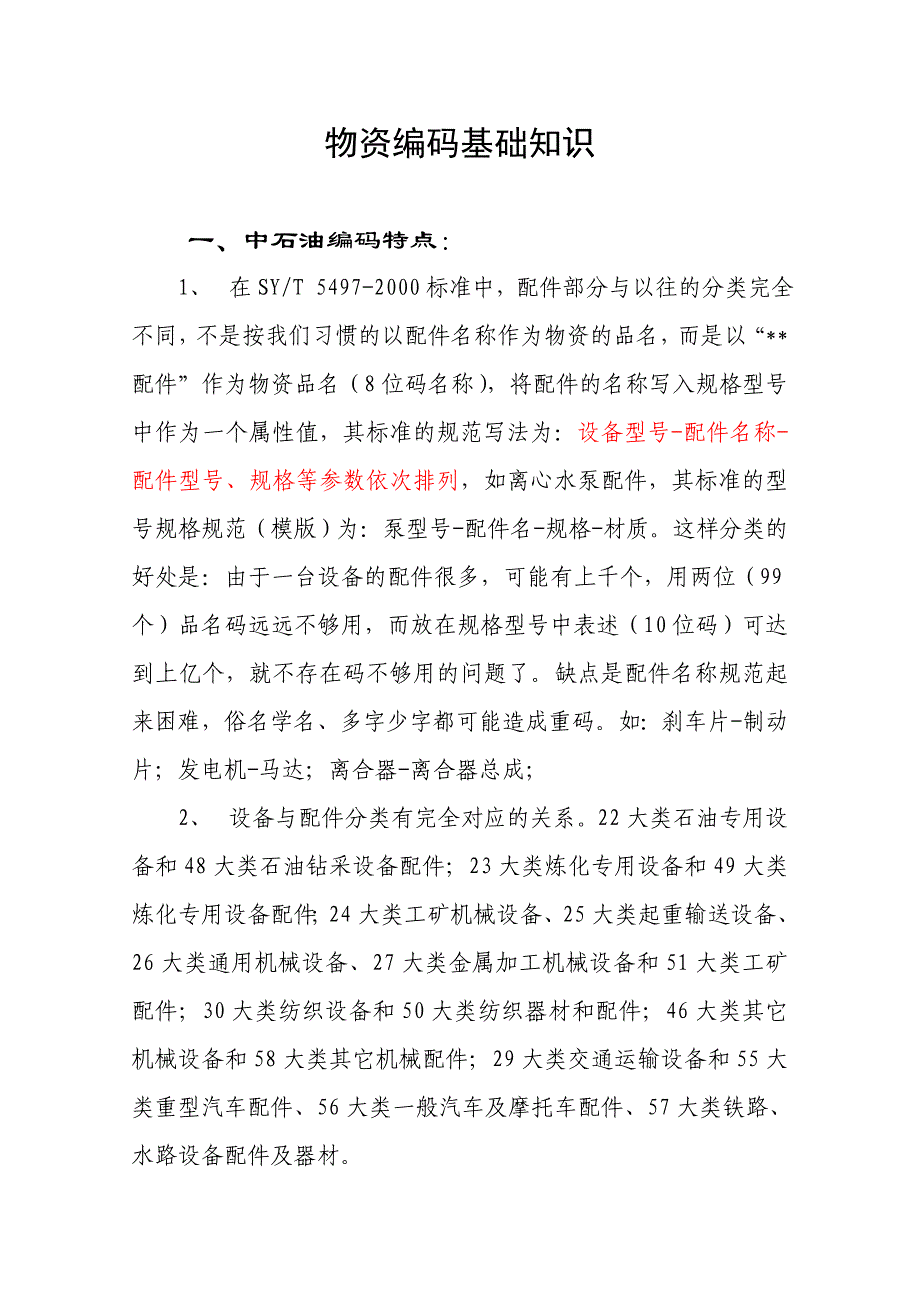 物资编码基础知识
一、中石油编码特点：
1、 在SY/T 5497-2000标准中，配件部分与以往的分类完全
不同，不是按我们习惯的以配件名称作为物资的品名，而是以“**
配件”作为物资品名（8位码名称），将配件的名称写入规格型号
中作为一个属性值，其标准的规范写法为：设备型号-配件名称-
配件型号、规格等参数依次排列，如离心水泵配件，其标准的型
号规格规范（模版）为：泵型号-配件名-规格-材质。这样分类的
好处是：由于一台设备的配件很多，可能有上千个，用两位（99
个）品名码远远不够用，而放在规格型号中表述（10位码）可达
到上亿个，就不存在码不够用的问题了。缺点是配件名称规范起
来困难，俗名学名、多字少字都可能造成重码。如：刹车片-制动
片；发电机-马达；离合器-离合器总成；
2、 设备与配件分类有完全对应的关系。22大类石油专用设
备和48大类石油钻采设备配件；23大类炼化专用设备和49大类
炼化专用设备配件；24大类工矿机械设备、25大类起重输送设备、
26大类通用机械设备、27大类金属加工机械设备和51大类工矿
配件；30大类纺织设备和50大类纺织器材和配件；46大类其它
机械设备和58大类其它机械配件；29大类交通运输设备和55大
类重型汽车配件、56大类一般汽车及摩托车配件、57大类铁路、
水路设备配件及器材。